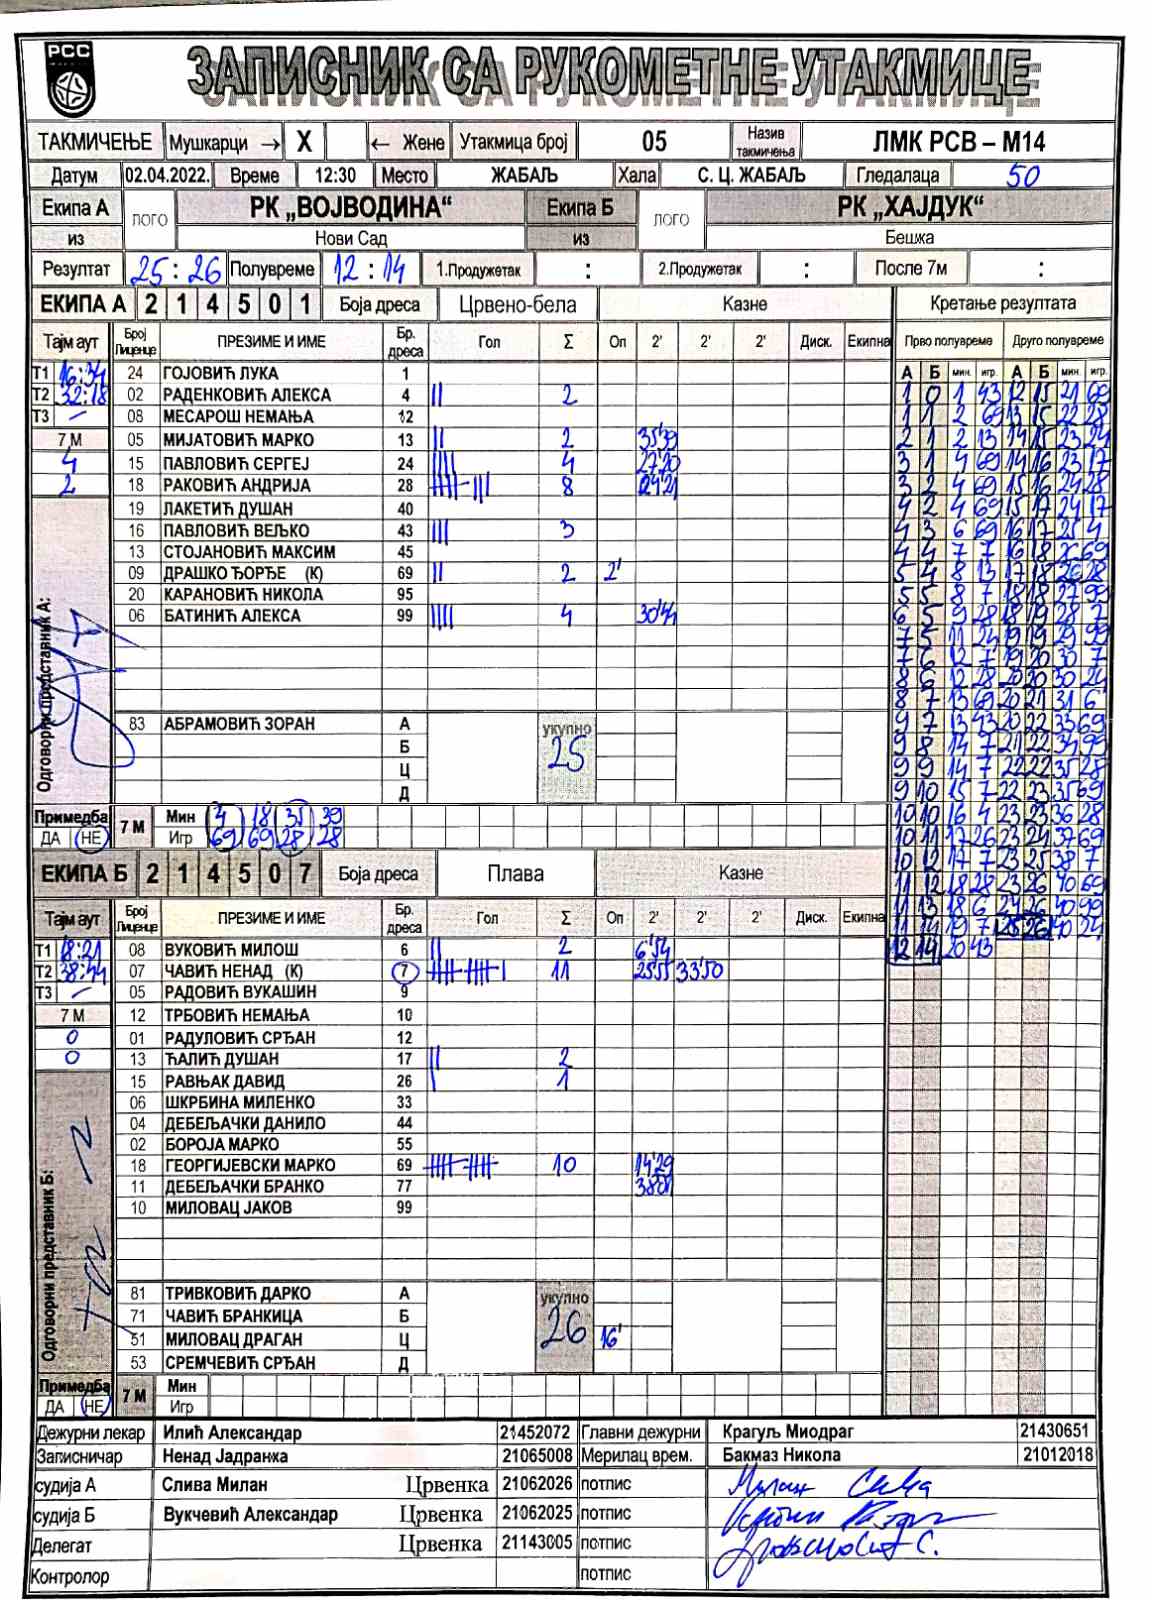 РСС
ЗАПИСНИК СА РУКОМЕТНЕ УТАКМИЦЕ
ТАКМИЧЕЊЕ Мушкарци → X ← Жене Утакмица број 05 Назив такмичења ЛМК РСВ – М14
Датум 02.04.2022. Време 12:30 Место ЖАБАЉ Хала С. Ц. ЖАБАЉ Гледалаца 50
Екипа А ЛОГО РК „ВОЈВОДИНА“ Екипа Б ЛОГО РК „ХАЈДУК“
из Нови Сад из Бешка
Резултат 25 : 26 Полувреме 12 : 14 1.Продужетак : 2.Продужетак : После 7м :
ЕКИПА А 2 1 4 5 0 1 Боја дреса Црвено-бела Казне Кретање резултата
Тајм аут Број Лиценце ПРЕЗИМЕ И ИМЕ Бр. дреса Гол Σ Оп 2' 2' 2' Диск. Екипна Прво полувреме Друго полувреме
А Б мин. игр. А Б мин. игр.
Т1 16:34 24 ГОЈОВИЋ ЛУКА 1
Т2 32:18 02 РАДЕНКОВИЋ АЛЕКСА 4 || 2
Т3 – 08 МЕСАРОШ НЕМАЊА 12
7 М 05 МИЈАТОВИЋ МАРКО 13 || 2 35'39
4 15 ПАВЛОВИЋ СЕРГЕЈ 24 |||| 4 27'20
2 18 РАКОВИЋ АНДРИЈА 28 8
19 ЛАКЕТИЋ ДУШАН 40
16 ПАВЛОВИЋ ВЕЉКО 43 ||| 3
13 СТОЈАНОВИЋ МАКСИМ 45
09 ДРАШКО ЂОРЂЕ (К) 69 || 2 2'
20 КАРАНОВИЋ НИКОЛА 95
06 БАТИНИЋ АЛЕКСА 99 |||| 4 30'44
Одговорни представник А:
83 АБРАМОВИЋ ЗОРАН А укупно
Б 25
Ц
Д
Примедба 7 М Мин 4 18 35 39
ДА НЕ Игр 69 69 28 28
1 0 1 43 12 15 21 69
1 1 2 69 13 15 22 28
2 1 2 13 14 15 23 24
3 1 4 69 14 16 23 17
3 2 4 69 15 16 24 28
4 2 4 69 15 17 24 17
4 3 6 69 16 17 25 4
4 4 7 7 16 18 26 69
5 4 8 13 17 18 26 28
5 5 8 7 18 18 27 99
6 5 9 28 18 19 28 7
7 5 11 24 19 19 29 99
7 6 12 7 19 20 30 7
8 6 12 28 20 20 30 24
8 7 13 69 20 21 31 6
9 7 13 43 20 22 33 69
9 8 14 7 21 22 34 99
9 9 14 7 22 22 35 28
9 10 15 7 22 23 35 69
10 10 16 4 23 23 36 28
10 11 17 26 23 24 37 69
10 12 17 7 23 25 38 7
11 12 18 28 23 26 40 69
11 13 18 6 24 26 40 99
11 14 19 7 25 26 40 24
12 14 20 43
ЕКИПА Б 2 1 4 5 0 7 Боја дреса Плава Казне
Тајм аут Број Лиценце ПРЕЗИМЕ И ИМЕ Бр. дреса Гол Σ Оп 2' 2' 2' Диск. Екипна
Т1 18:21 08 ВУКОВИЋ МИЛОШ 6 || 2 6'54
Т2 38:44 07 ЧАВИЋ НЕНАД (К) 7 11 25'51 33'50
Т3 – 05 РАДОВИЋ ВУКАШИН 9
7 М 12 ТРБОВИЋ НЕМАЊА 10
0 01 РАДУЛОВИЋ СРЂАН 12
0 13 ЋАЛИЋ ДУШАН 17 || 2
15 РАВЊАК ДАВИД 26 | 1
06 ШКРБИНА МИЛЕНКО 33
04 ДЕБЕЉАЧКИ ДАНИЛО 44
02 БОРОЈА МАРКО 55
18 ГЕОРГИЈЕВСКИ МАРКО 69 10 14'29
11 ДЕБЕЉАЧКИ БРАНКО 77
10 МИЛОВАЦ ЈАКОВ 99
Одговорни представник Б:
81 ТРИВКОВИЋ ДАРКО А укупно
71 ЧАВИЋ БРАНКИЦА Б 26
51 МИЛОВАЦ ДРАГАН Ц 16'
53 СРЕМЧЕВИЋ СРЂАН Д
Примедба 7 М Мин
ДА НЕ Игр
Дежурни лекар Илић Александар 21452072 Главни дежурни Крагуљ Миодраг 21430651
Записничар Ненад Јадранка 21065008 Мерилац врем. Бакмаз Никола 21012018
судија А Слива Милан Црвенка 21062026 потпис
судија Б Вукчевић Александар Црвенка 21062025 потпис
Делегат Црвенка 21143005 потпис
Контролор потпис